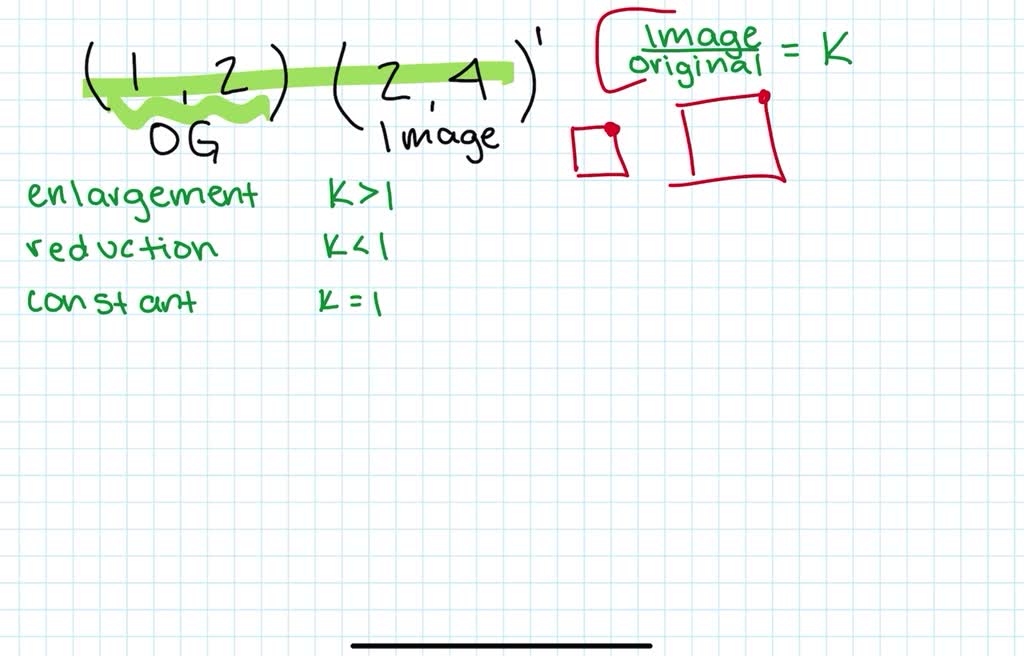 (1, 2) (2, 4)'
OG Image
Image
original = K
enlargement K>1
reduction K<1
constant K=1